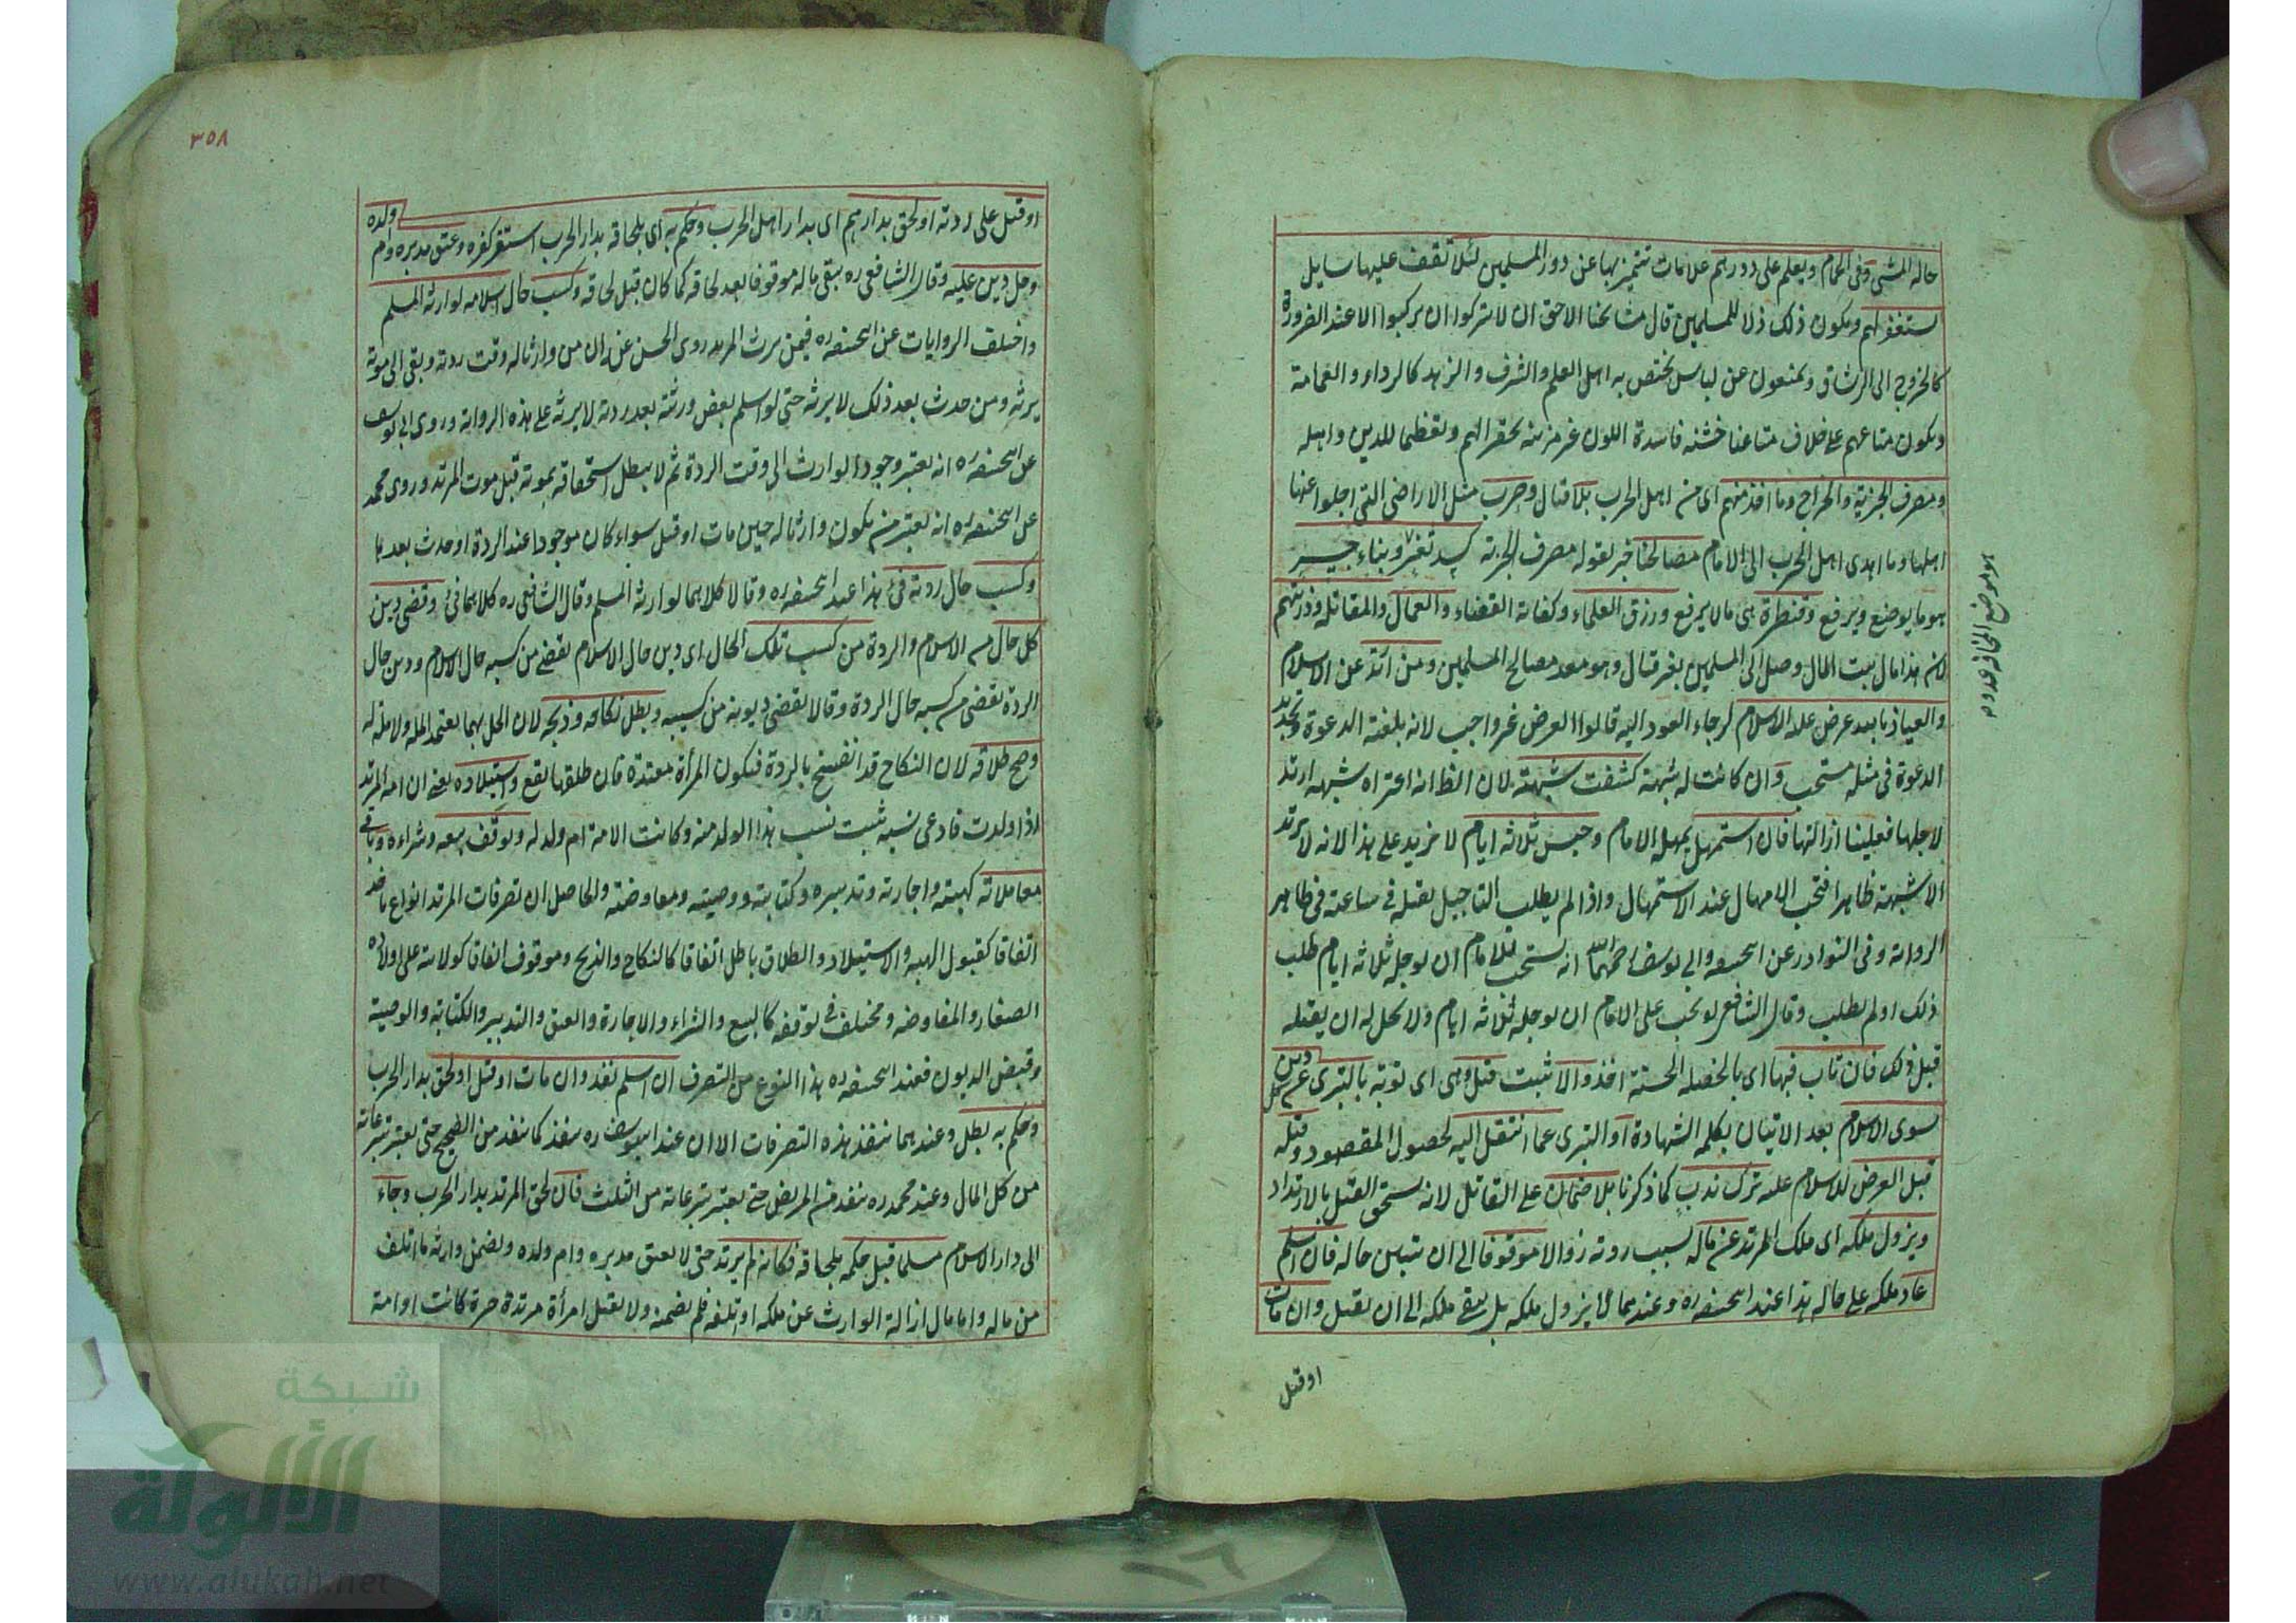 حاله المشى وفى الحمام ويعلم على دورهم علامات تتميز بها عن دور المسلمين لئلا تقف عليها سايل
يستغفر لهم ويكون ذلك ذلا للمسلمين قال مشايخنا الاحق ان لا يتركوا ان يركبوا الا عند الضرورة
كالخروج الى الرستاق ويمنعون عن لباس يختص به اهل العلم والشرف والزهد كالرداء والعمامة
ويكون متاعهم على خلاف متاعنا خشنه فاسدة اللون غير مزينه تحقيرا لهم وتعظيما للدين واهله
ومصرف الجزية والخراج وما اخذ منهم اى من اهل الحرب بلا قتال وحرب مثل الاراضى التى اجلوا عنها
اهلها وما اهدى اهل الحرب الى الامام مصالحنا خبر لقوله مصرف الجزية كسد ثغر وبناء جسر
هو ما يوضع ويرفع وقنطرة هى ما لا يرفع ورزق العلماء وكفاية القضاء والعمال والمقاتلة وذريتهم
لان هذا مال بيت المال وصل الى المسلمين بغير قتال وهو معد مصالح المسلمين ومن ارتد عن الاسلام
والعياذ بالله عرض عليه الاسلام لرجاء العود اليه قالوا العرض غير واجب لانه بلغته الدعوة وتجديد
الدعوة فى مثله مستحب وان كانت له شبهة كشفت شبهته لان الظ انه اعتراه شبهه ارتد
لاجلها فعلينا ازالتها فان استمهل يمهله الامام وحبس ثلاثه ايام لا مزيد على هذا لانه لا يرتد
الا شبهة ظاهرا فتجب الامهال عند الاستمهال واذا لم يطلب التاجيل يقتله فى ساعته فى ظاهر
الرواية وفى النوادر عن ابيحنيفه وابى يوسف رحمهما الله انه يستحب للامام ان يوجله ثلاثه ايام طلب
ذلك او لم يطلب وقال الشافعى يجب على الامام ان يوجله ثلاثه ايام ولا يحل له ان يقتله
قبل ذلك فان تاب فبها اى بالخصلة الحسنة اخذ والا ثبت قتل وهى اى توبته بالتبرى عن كل دين
سوى الاسلام بعد الاتيان بكلمه الشهادة او التبرى عما انتقل اليه لحصول المقصود وقتله
قبل العرض للاسلام عليه ترك ندب كما ذكرنا بلا ضمان على القاتل لانه يستحق القتل بالارتداد
ويزول ملكه اى ملك المرتد عن ماله بسبب ردته زوالا موقوفا الى ان يتبين حاله فان اسلم
عاد ملكه على حاله هذا عند ابيحنيفه ره وعندهما لا يزول ملكه بل يبقى ملكه الى ان يقتل وان مات
اوقتل
٣٥٨
او قتل على ردته او لحق بدارهم اى بدار اهل الحرب وحكم به اى بلحاقه بدار الحرب استقر كفره وعتق مدبره وام ولده
وحل دين عليه وقال الشافعى ره يبقى ماله موقوفا بعد لحاقه كما كان قبل لحاقه وكسب حال اسلامه لوارثه المسلم
واختلف الروايات عن ابيحنيفه ره فيمن يرث المرتد روى الحسن عنه ان من وارثا له وقت ردته وبقى الى موته
يرثه ومن حدث بعد ذلك لا يرثه حتى لو اسلم بعض ورثته بعد ردته لا يرثه على هذه الرواية وروى ابى يوسف
عن ابيحنيفه ره انه يعتبر وجود الوارث الى وقت الردة ثم لا يبطل استحقاقه بموته قبل موت المرتد وروى محمد
عن ابيحنيفه ره انه يعتبر من يكون وارثا له حين مات او قتل سواء كان موجودا عند الردة او حدث بعدها
وكسب حال ردته فئ هذا عند ابيحنيفه ره وقالا كلاهما لوارثه المسلم وقال الشافعى ره كلاهما فئ وقضى دين
كل حال من الاسلام والردة من كسب تلك الحال اى دين حال الاسلام يقضى من كسبه حال الاسلام ودين حال
الردة يقضى من كسبه حال الردة وقالا يقضى ديونه من كسبيه وبطل نكاحه وذبحه لان الحل بهما يعتمد الملة ولا ملة له
وصح طلاقه لان النكاح قد انفسخ بالردة فيكون المرأة معتدة فان طلقها يقع واستيلاده يعنى ان امه المرتد
اذا ولدت فادعى نسبه ثبت نسب هذا الولد منه وكانت الامة ام ولد له وتوقف بيعه وشراءه وباقى
معاملاته كهبته واجارته وتدبيره وكتابته ووصيته ومعاوضته والحاصل ان تصرفات المرتد انواع نافذ
اتفاقا كقبول الهبه والاستيلاد والطلاق باطل اتفاقا كالنكاح والذبح وموقوف اتفاقا كولايته على اولاده
الصغار والمفاوضه ومختلف فى توقفه كالبيع والشراء والاجارة والعتق والتدبير والكتابة والوصية
وقبض الديون فعند ابيحنيفه ره هذا النوع من التصرف ان اسلم نفذ وان مات او قتل او لحق بدار الحرب
وحكم به بطل وعندهما ينفذ هذه التصرفات الا ان عند ابيوسف ره ينفذ كما ينفذ من الصحيح حتى يعتبر تبرعاته
من كل المال وعند محمد ره ينفذ من المريض حتى يعتبر تبرعاته من الثلث فان لحق المرتد بدار الحرب وجاء
الى دار الاسلام مسلما قبل حكمه بلحاقه فكانه لم يرتد حتى لا يعتق مدبره وام ولده ويضمن وارثه ما اتلف
من ماله واما مال ازاله الوارث عن ملكه او تلفه فلم يضمنه ولا يقتل امرأة مرتدة حرة كانت او امة
شبكة
الألوكة
www.alukah.net